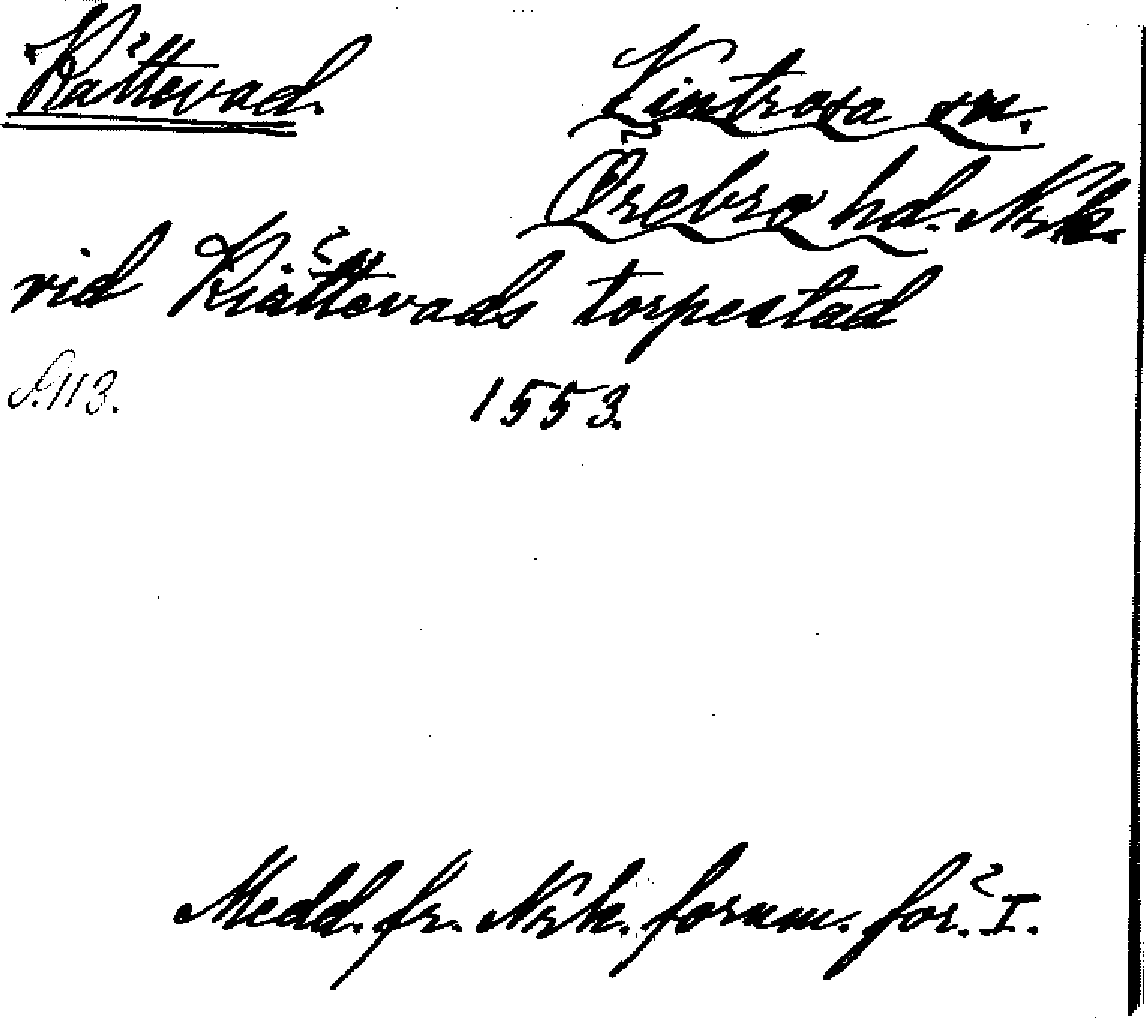 Kättevad
Kintrosa sn.
Örebro hd. Nrk.
vid Kiättevads torpestad
S. 113.
1553.
Medd. fr. Nrk. fornm. för. I.